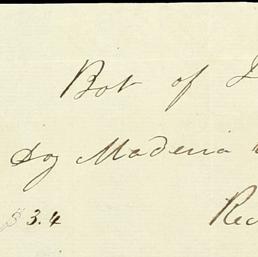 Bot of
Doz Maderia
3.4 Rec